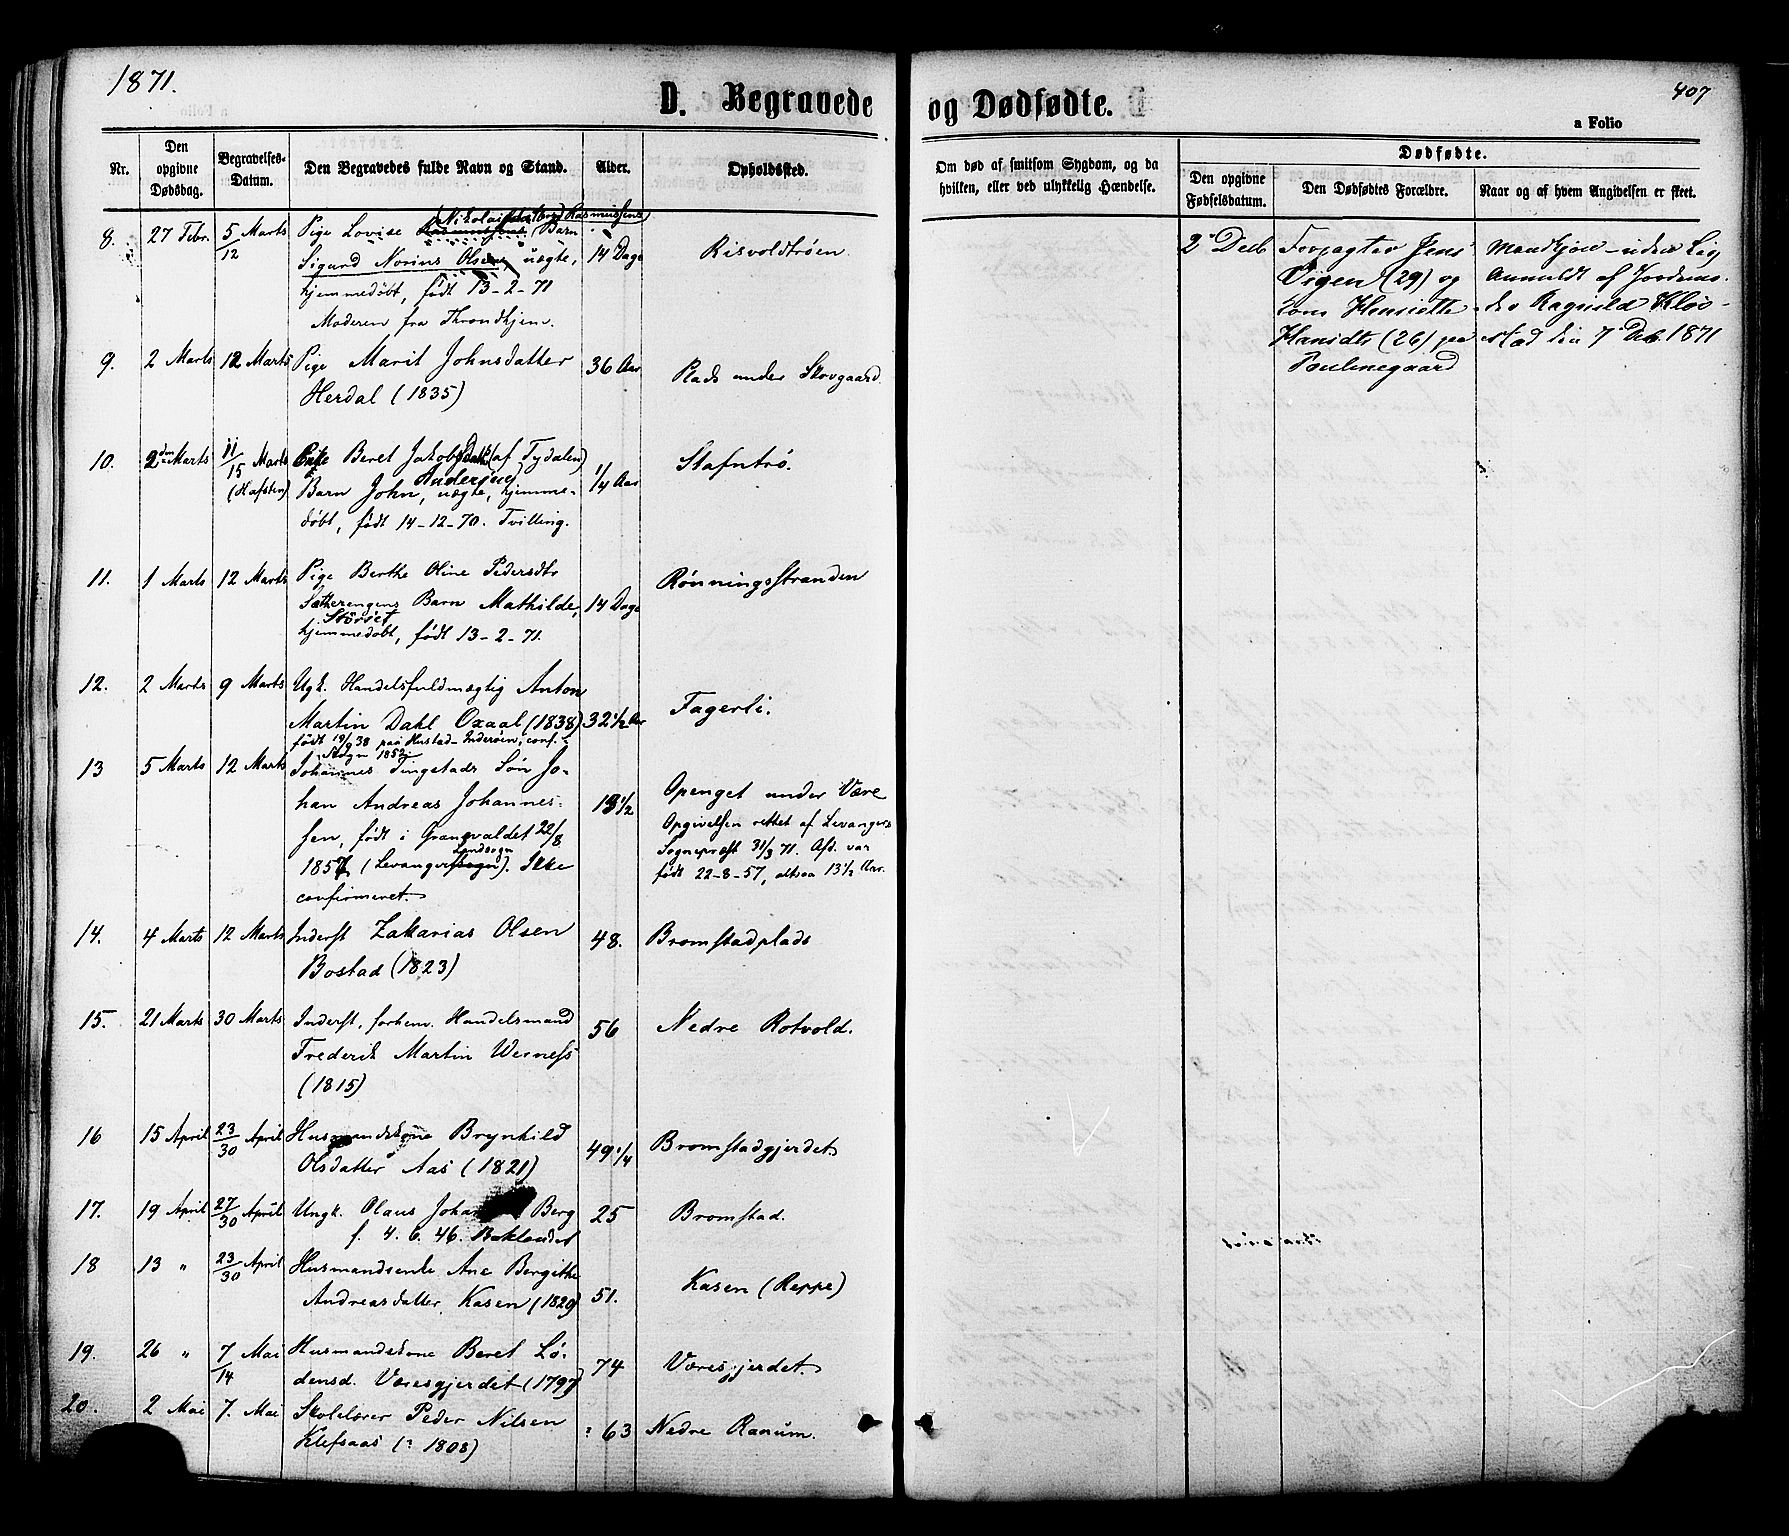 1871.
D. Begravede
og Dødfødte.
407
a Folio
Nr.
Den opgivne Dødsdag.
Begravelses-Datum.
Den Begravedes fulde Navn og Stand.
Alder.
Opholdssted.
Om død af smitsom Sygdom, og da hvilken, eller ved ulykkelig Hændelse.
Dødfødte.
Den opgivne Fødselsdatum.
Den Dødfødtes Forældre.
Naar og af hvem Angivelsen er skeet.
8. 27 Febr. 5/12 Marts Pige Lovise Rasmussens Barn
Sigurd Norius Olsen, uægte, 14 Dage Risvoldtrøen.
hjemmedøbt, født 13-2-71
Moderen fra Throndhjem.
9. 2 Marts 12 Marts Pige Marit Johnsdatter 36 Aar Plads under Skovgaard.
Herdal (1835)
10. 2den Marts 11/15 Marts Beret Jakobsdatr (af Tydalen)
(Hafsten) Barn John, uægte, hjemme- 1/4 Aar Stafntrø.
Andersine
døbt, født 14-12-70. Tvilling.
11. 1 Marts 12 Marts Pige Berthe Oline Pedersdtr Rønningsstranden
Sætherengens Barn Mathilde, 14 Dage
Störset
hjemmedøbt, født 13-2-71.
12. 2 Marts 9 Marts Ugk. Handelsfuldmægtig Anton
Martin Dahl Oxaal (1838) 32 1/2 Aar Fagerli.
født 19/9 38 paa Hustad - Inderøen, conf. i
Sogn 1852
13 5 Marts 12 Marts Johannes Tingstads Søn Jo-
han Andreas Johannes- 13 1/2 Openget under Være
sen, født i Grangvaldet 22/8 Opgivelsen rettet af Levangers
Landsogn
1857 (Levanger Sogn). Ikke Sognepræst 31/3 71. Afd. var
confirmeret. født 22-8-57, altsaa 13 1/2 Aar.
14. 4 Marts 12 Marts Inderst Zakarias Olsen 48. Bromstadplads
Bostad (1823)
15. 21 Marts 30 Marts Inderst, forhen. Handelsmand 56 Nedre Rotvold.
Frederik Martin Weiness
(1815)
16 15 April 23/30 April Husmandskone Brynhild 49 1/4 Bromstadgjerdet
Olsdatter Aas (1821)
17. 19 April 27/30 April Ungk. Olaus Berg 25 Bromstad.
f. 4. 6. 46. Baklandet
18 13 " 23/30 April Husmandsenke Ane Bergithe Kasen (Reppe)
Andreasdatter Kasen (1820) 51.
19. 26 " 7/14 Mai Husmandskone Beret Lo- 74 Væresgjerdet
densd. Væresgjerdet (1797)
20. 2 Mai 7. Mai Skolelærer Peder Nilsen ? 63 Nedre Ranum.
Klefsaas (? 1808)
2 Decb Forpagter Jens
Vigen (29) og
Kone Henriette
(26) paa
Paulinegaard
Mandkjøn - uden Liv
Anmeldt af Jordemo-
der Ragnild Klø-
stad den 7 Deb. 1871